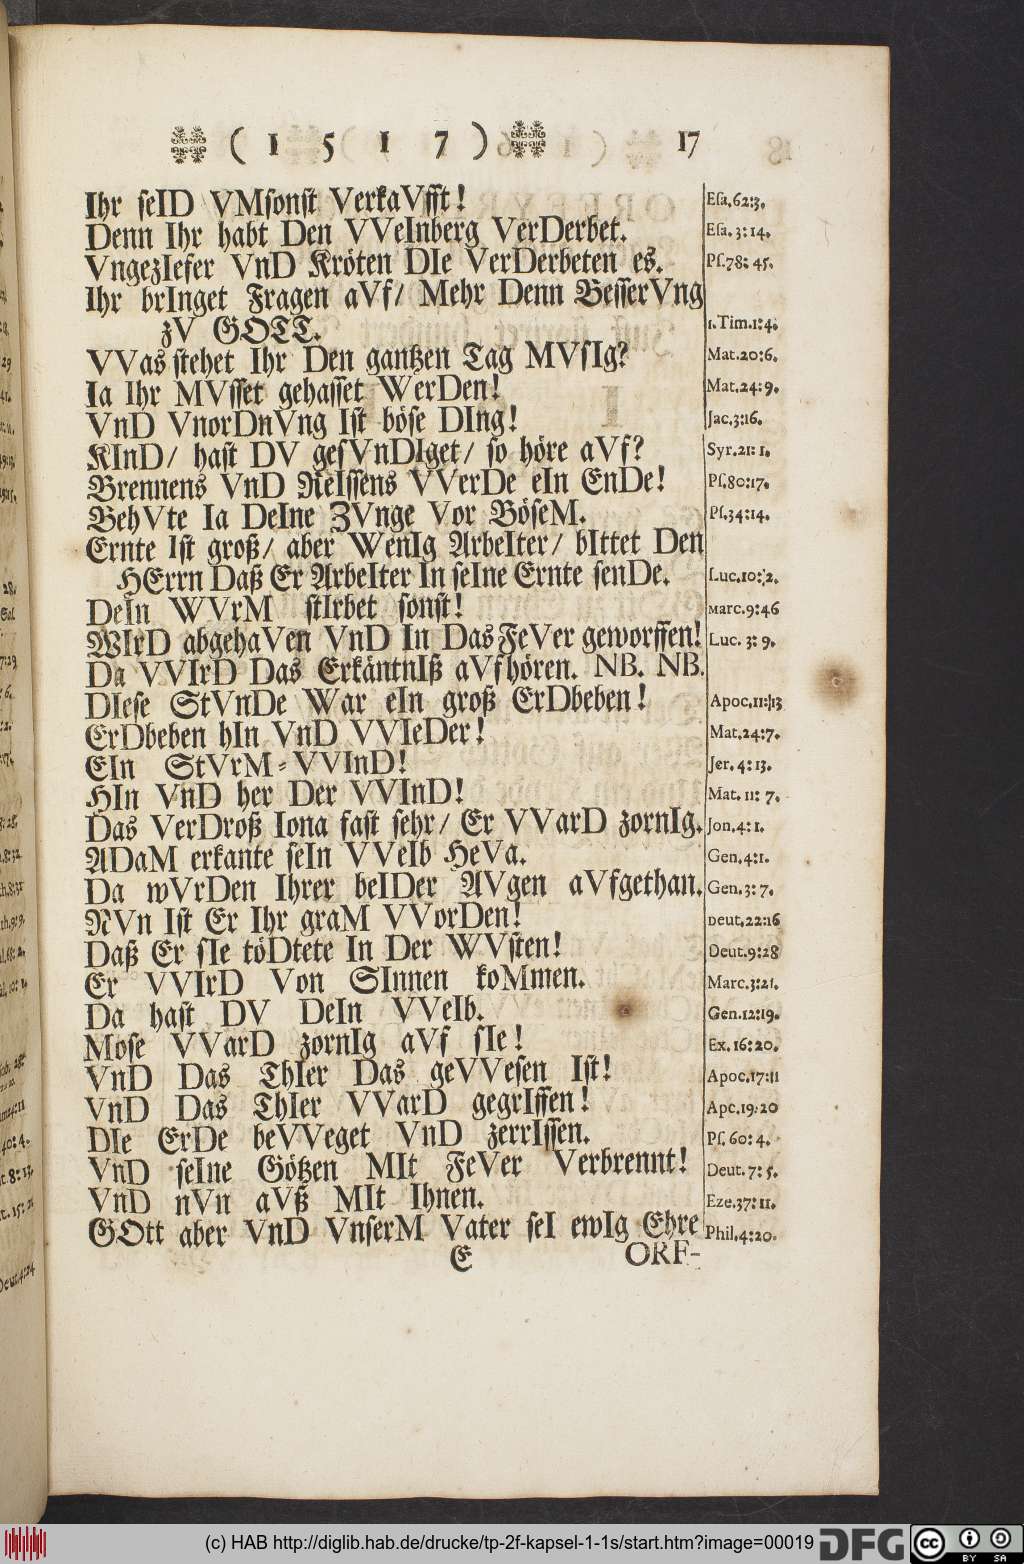 ( 1 5 1 7 ) 17
Ihr ſeID VMſonſt VerkaVfft! Eſa.62:3.
Denn Ihr habt Den VVeInberg VerDerbet. Eſa.3:14.
VngezIefer VnD Kröten DIe VerDerbeten es. Pſ.78:45.
Ihr brInget Fragen aVf/ Mehr Denn BeſſerVng
zV GOTT. 1.Tim.1:4.
VVas ſtehet Ihr Den gantzen Tag MVſIg? Mat.20:6.
Ia Ihr MVſſet gehaſſet WerDen! Mat.24:9.
VnD VnorDnVng Iſt böſe DIng! Jac.3:16.
KInD/ haſt DV geſVnDIget/ ſo höre aVf? Syr.21:1.
Brennens VnD ReIſſens VVerDe eIn EnDe! Pſ.80:17.
BehVte Ia DeIne ZVnge Vor BöſeM. Pſ.34:14.
Ernte Iſt groß/ aber WenIg ArbeIter/ bIttet Den
HErrn Daß Er ArbeIter In ſeIne Ernte ſenDe. Luc.10:2.
DeIn WVrM ſtIrbet ſonſt! Marc.9:46
WIrD abgehaVen VnD In Das FeVer geworffen! Luc. 3: 9.
Da VVIrD Das ErkäntnIß aVfhören. NB. NB.
DIeſe StVnDe War eIn groß ErDbeben! Apoc.11:13
ErDbeben hIn VnD VVIeDer! Mat.24:7.
EIn StVrM-VVInD! Jer. 4: 13.
HIn VnD her Der VVInD! Mat. 11: 7.
Das VerDroß Iona faſt ſehr/ Er VVarD zornIg. Jon.4: 1.
ADaM erkante ſeIn VVeIb HeVa. Gen.4:1.
Da wVrDen Ihrer beIDer AVgen aVfgethan. Gen.3: 7.
NVn Iſt Er Ihr graM VVorDen! Deut.22:16
Daß Er ſIe töDtete In Der WVſten! Deut.9:28
Er VVIrD Von SInnen koMmen. Marc.3:21.
Da haſt DV DeIn VVeIb. Gen.12:19.
Moſe VVarD zornIg aVf ſIe! Ex. 16:20.
VnD Das ThIer Das geVVeſen Iſt! Apoc.17:11
VnD Das ThIer VVarD gegrIffen! Apc.19:20
DIe ErDe beVVeget VnD zerrIſſen. Pſ. 60: 4.
VnD ſeIne Götzen MIt FeVer Verbrennt! Deut. 7: 5.
VnD nVn aVß MIt Ihnen. Eze.37: 11.
GOtt aber VnD VnſerM Vater ſeI ewIg Ehre Phil.4:20.
E ORF-
(c) HAB http://diglib.hab.de/drucke/tp-2f-kapsel-1-1s/start.htm?image=00019 DFG cc BY SA